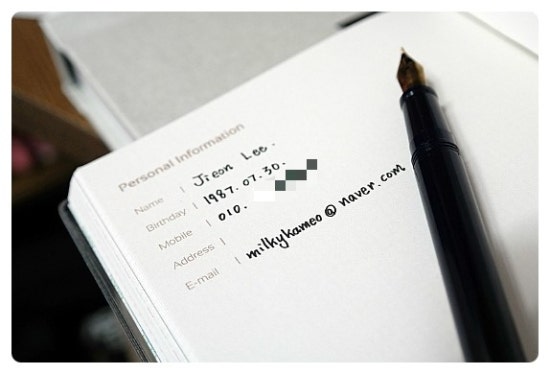 Personal Information
Name | Jieon Lee.
Birthday | 1987.07.30.
Mobile | 010.
Address |
E-mail | milkykameo@naver.com